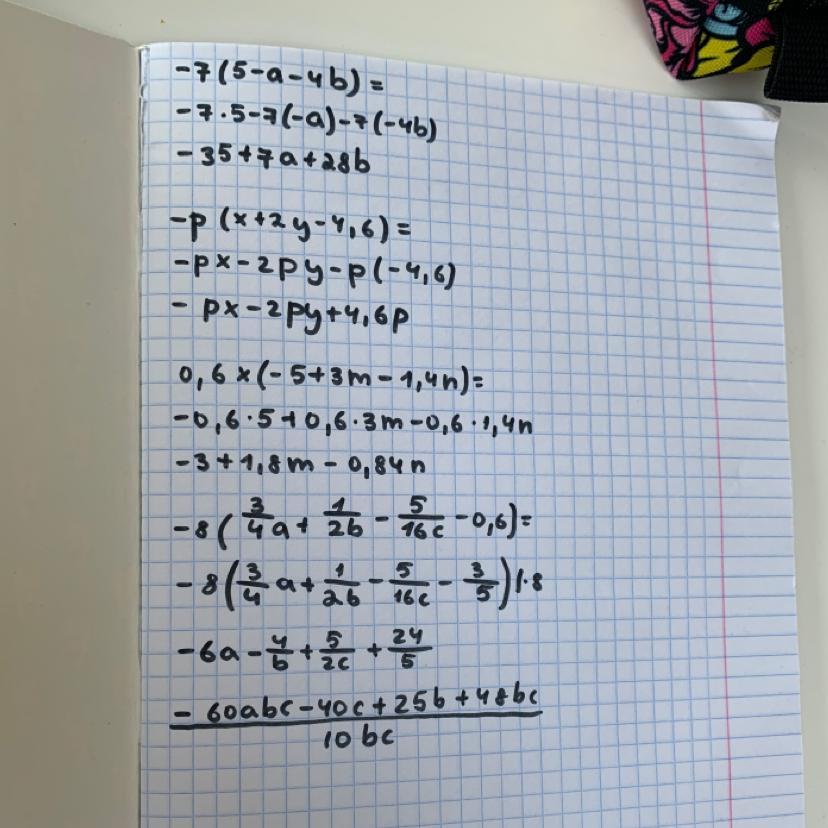 -7(5-a-4b)=
-7·5-7(-a)-7(-4b)
-35+7a+28b
-p(x+2y-4,6)=
-px-2py-p(-4,6)
- px-2py+4,6p
0,6×(-5+3m-1,4n)=
-0,6·5+0,6·3m-0,6·1,4n
-3+1,8m-0,84n
-8(3/4a+1/2b-5/16c-0,6)=
-8(3/4a+1/2b-5/16c-3/5)|·8
-6a-4/b+5/2c+24/5
- 60abc-40c+25b+48bc
10bc